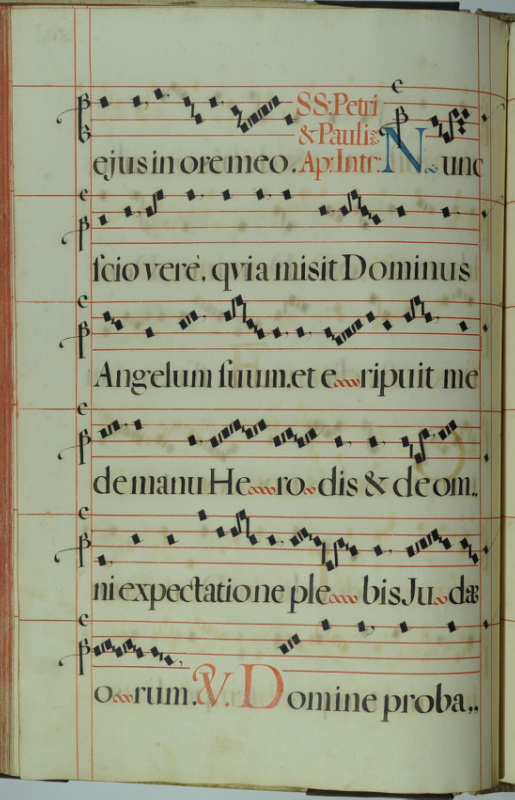 SS: Petri
& Pauli
ejus in ore meo. Ap: Intr: Nunc
scio verè, qvia misit Dominus
Angelum suum. et eripuit me
de manu Herodis & de om..
ni expectatione plebis Judæ
orum. V. Domine proba..